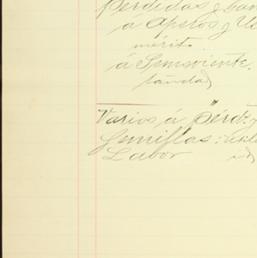 Perdidas y
á Aperos y
mérito
á Semoviente
Varios á Pérd. y
Semillas:
Labor